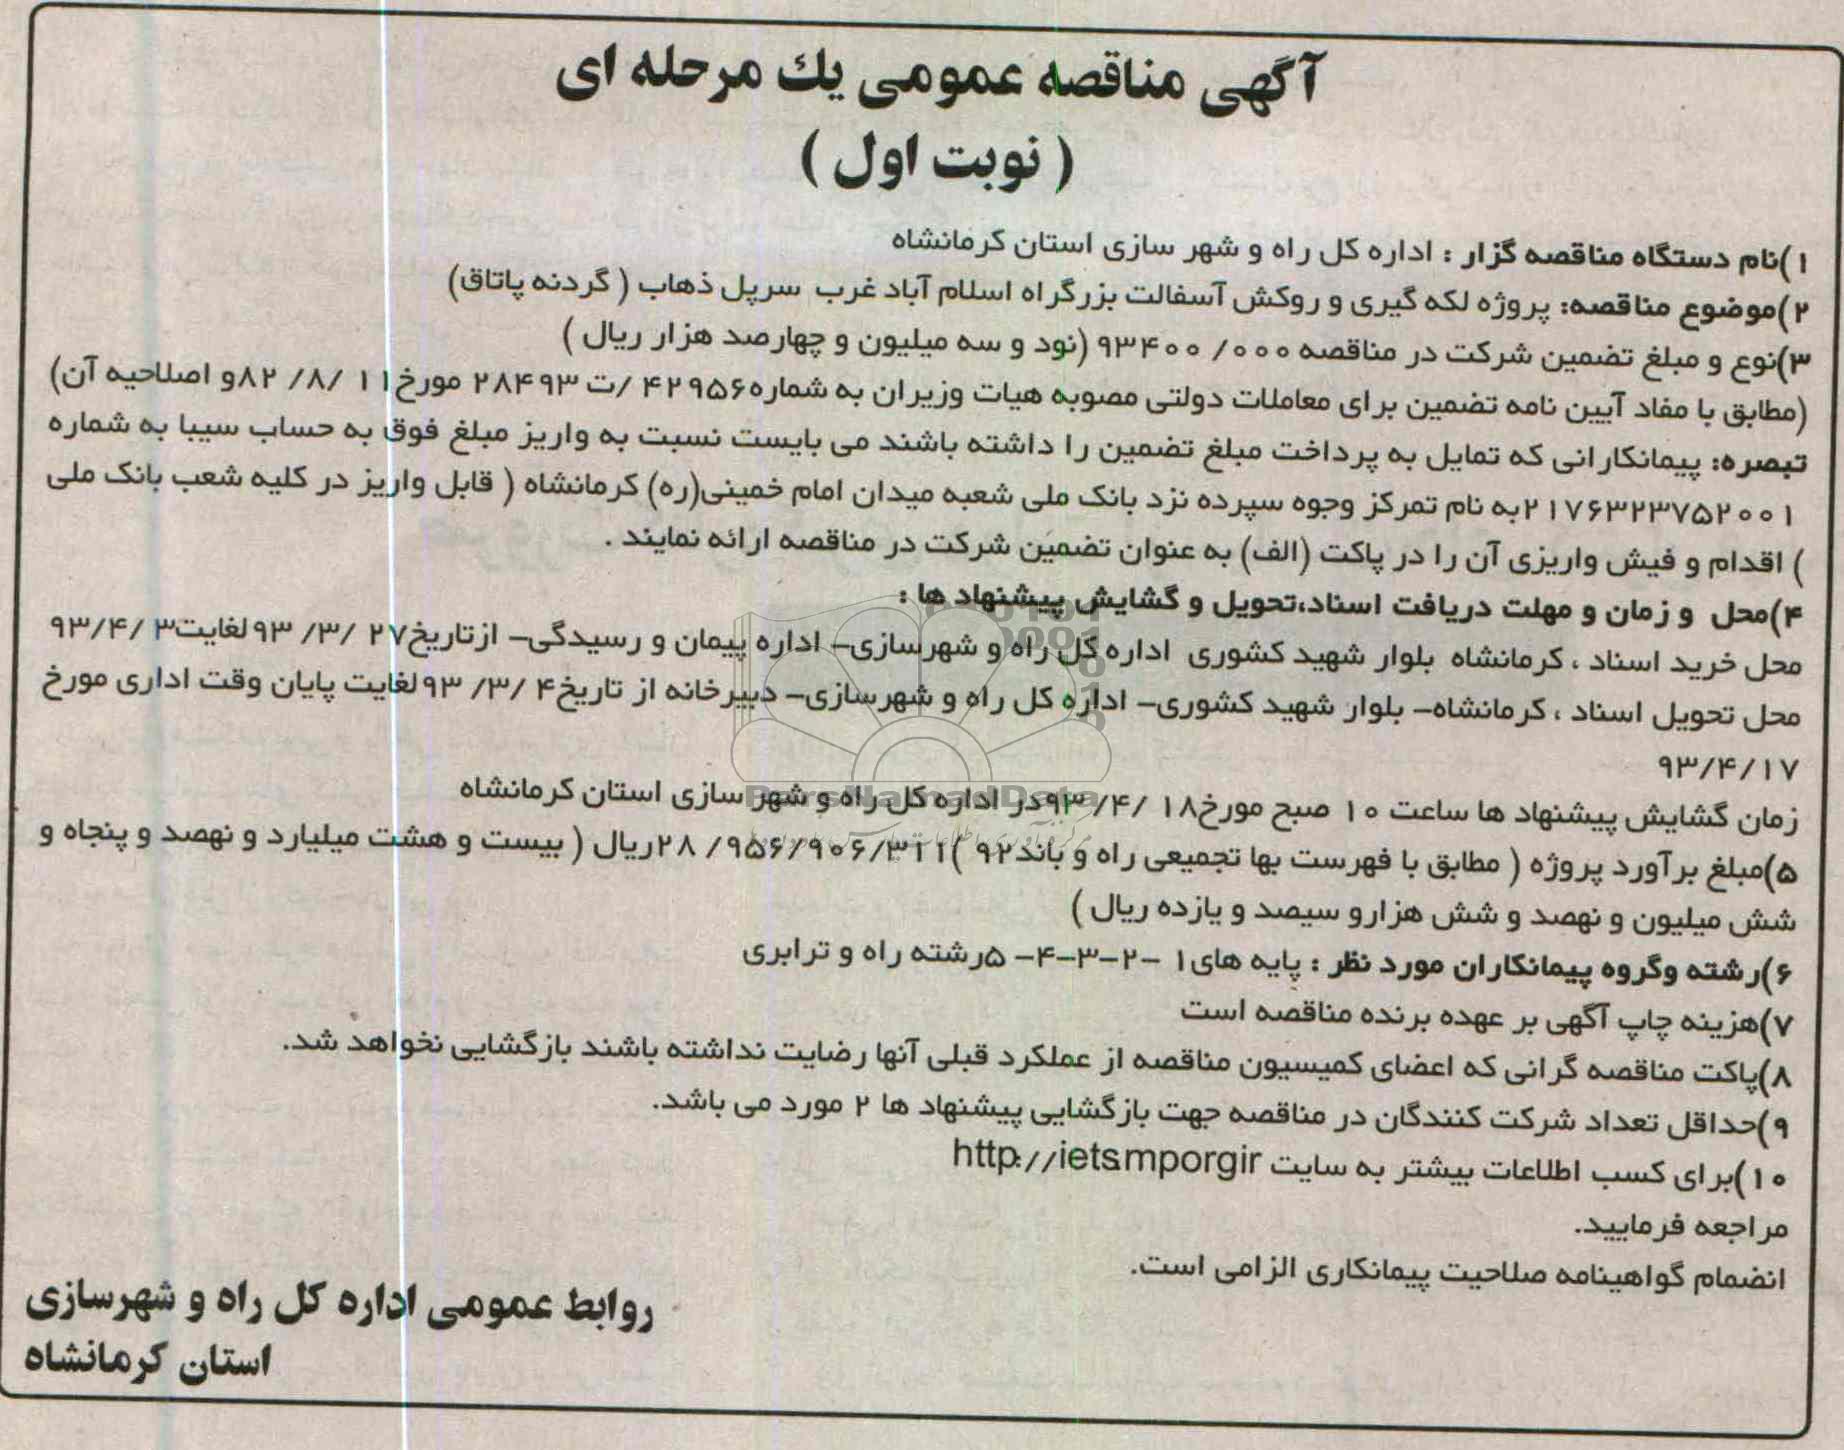 آگهی مناقصه عمومی یك مرحله ای
( نوبت اول )
۱)نام دستگاه مناقصه گزار : اداره کل راه و شهر سازی استان کرمانشاه
۲)موضوع مناقصه: پروژه لکه گیری و روکش آسفالت بزرگراه اسلام آباد غرب سرپل ذهاب ( گردنه پاتاق)
۳)نوع و مبلغ تضمین شرکت در مناقصه ۰۰۰/ ۹۳۴۰۰ (نود و سه میلیون و چهارصد هزار ریال )
(مطابق با مفاد آیین نامه تضمین برای معاملات دولتی مصوبه هیات وزیران به شماره۴۲۹۵۶ /ت ۲۸۴۹۳ مورخ۱۱ /۸/ ۸۲و اصلاحیه آن)
تبصره: پیمانکارانی که تمایل به پرداخت مبلغ تضمین را داشته باشند می بایست نسبت به واریز مبلغ فوق به حساب سیبا به شماره
۲۱۷۶۳۲۳۷۵۲۰۰۱به نام تمرکز وجوه سپرده نزد بانک ملی شعبه میدان امام خمینی(ره) کرمانشاه ( قابل واریز در کلیه شعب بانک ملی
) اقدام و فیش واریزی آن را در پاکت (الف) به عنوان تضمین شرکت در مناقصه ارائه نمایند .
۴)محل و زمان و مهلت دریافت اسناد،تحویل و گشایش پیشنهاد ها :
محل خرید اسناد ، کرمانشاه بلوار شهید کشوری اداره کل راه و شهرسازی– اداره پیمان و رسیدگی– ازتاریخ۲۷ /۳/ ۹۳لغایت۳ /۹۳/۴
محل تحویل اسناد ، کرمانشاه– بلوار شهید کشوری– اداره کل راه و شهرسازی– دبیرخانه از تاریخ۴ /۳/ ۹۳لغایت پایان وقت اداری مورخ
۹۳/۴/۱۷
زمان گشایش پیشنهاد ها ساعت ۱۰ صبح مورخ۱۸ /۴/ ۹۳در اداره کل راه و شهر سازی استان کرمانشاه
۵)مبلغ برآورد پروژه ( مطابق با فهرست بها تجمیعی راه و باند۹۲ )۲۸ /۹۵۶/۹۰۶/۳۱۱ریال ( بیست و هشت میلیارد و نهصد و پنجاه و
شش میلیون و نهصد و شش هزارو سیصد و یازده ریال )
۶)رشته وگروه پیمانکاران مورد نظر : پایه های۱ –۲–۳–۴– ۵رشته راه و ترابری
۷)هزینه چاپ آگهی بر عهده برنده مناقصه است
۸)پاکت مناقصه گرانی که اعضای کمیسیون مناقصه از عملکرد قبلی آنها رضایت نداشته باشند بازگشایی نخواهد شد.
۹)حداقل تعداد شرکت کنندگان در مناقصه جهت بازگشایی پیشنهاد ها ۲ مورد می باشد.
۱۰)برای کسب اطلاعات بیشتر به سایت http://iets.mporgir
مراجعه فرمایید.
انضمام گواهینامه صلاحیت پیمانکاری الزامی است.
روابط عمومی اداره کل راه و شهرسازی
استان کرمانشاه